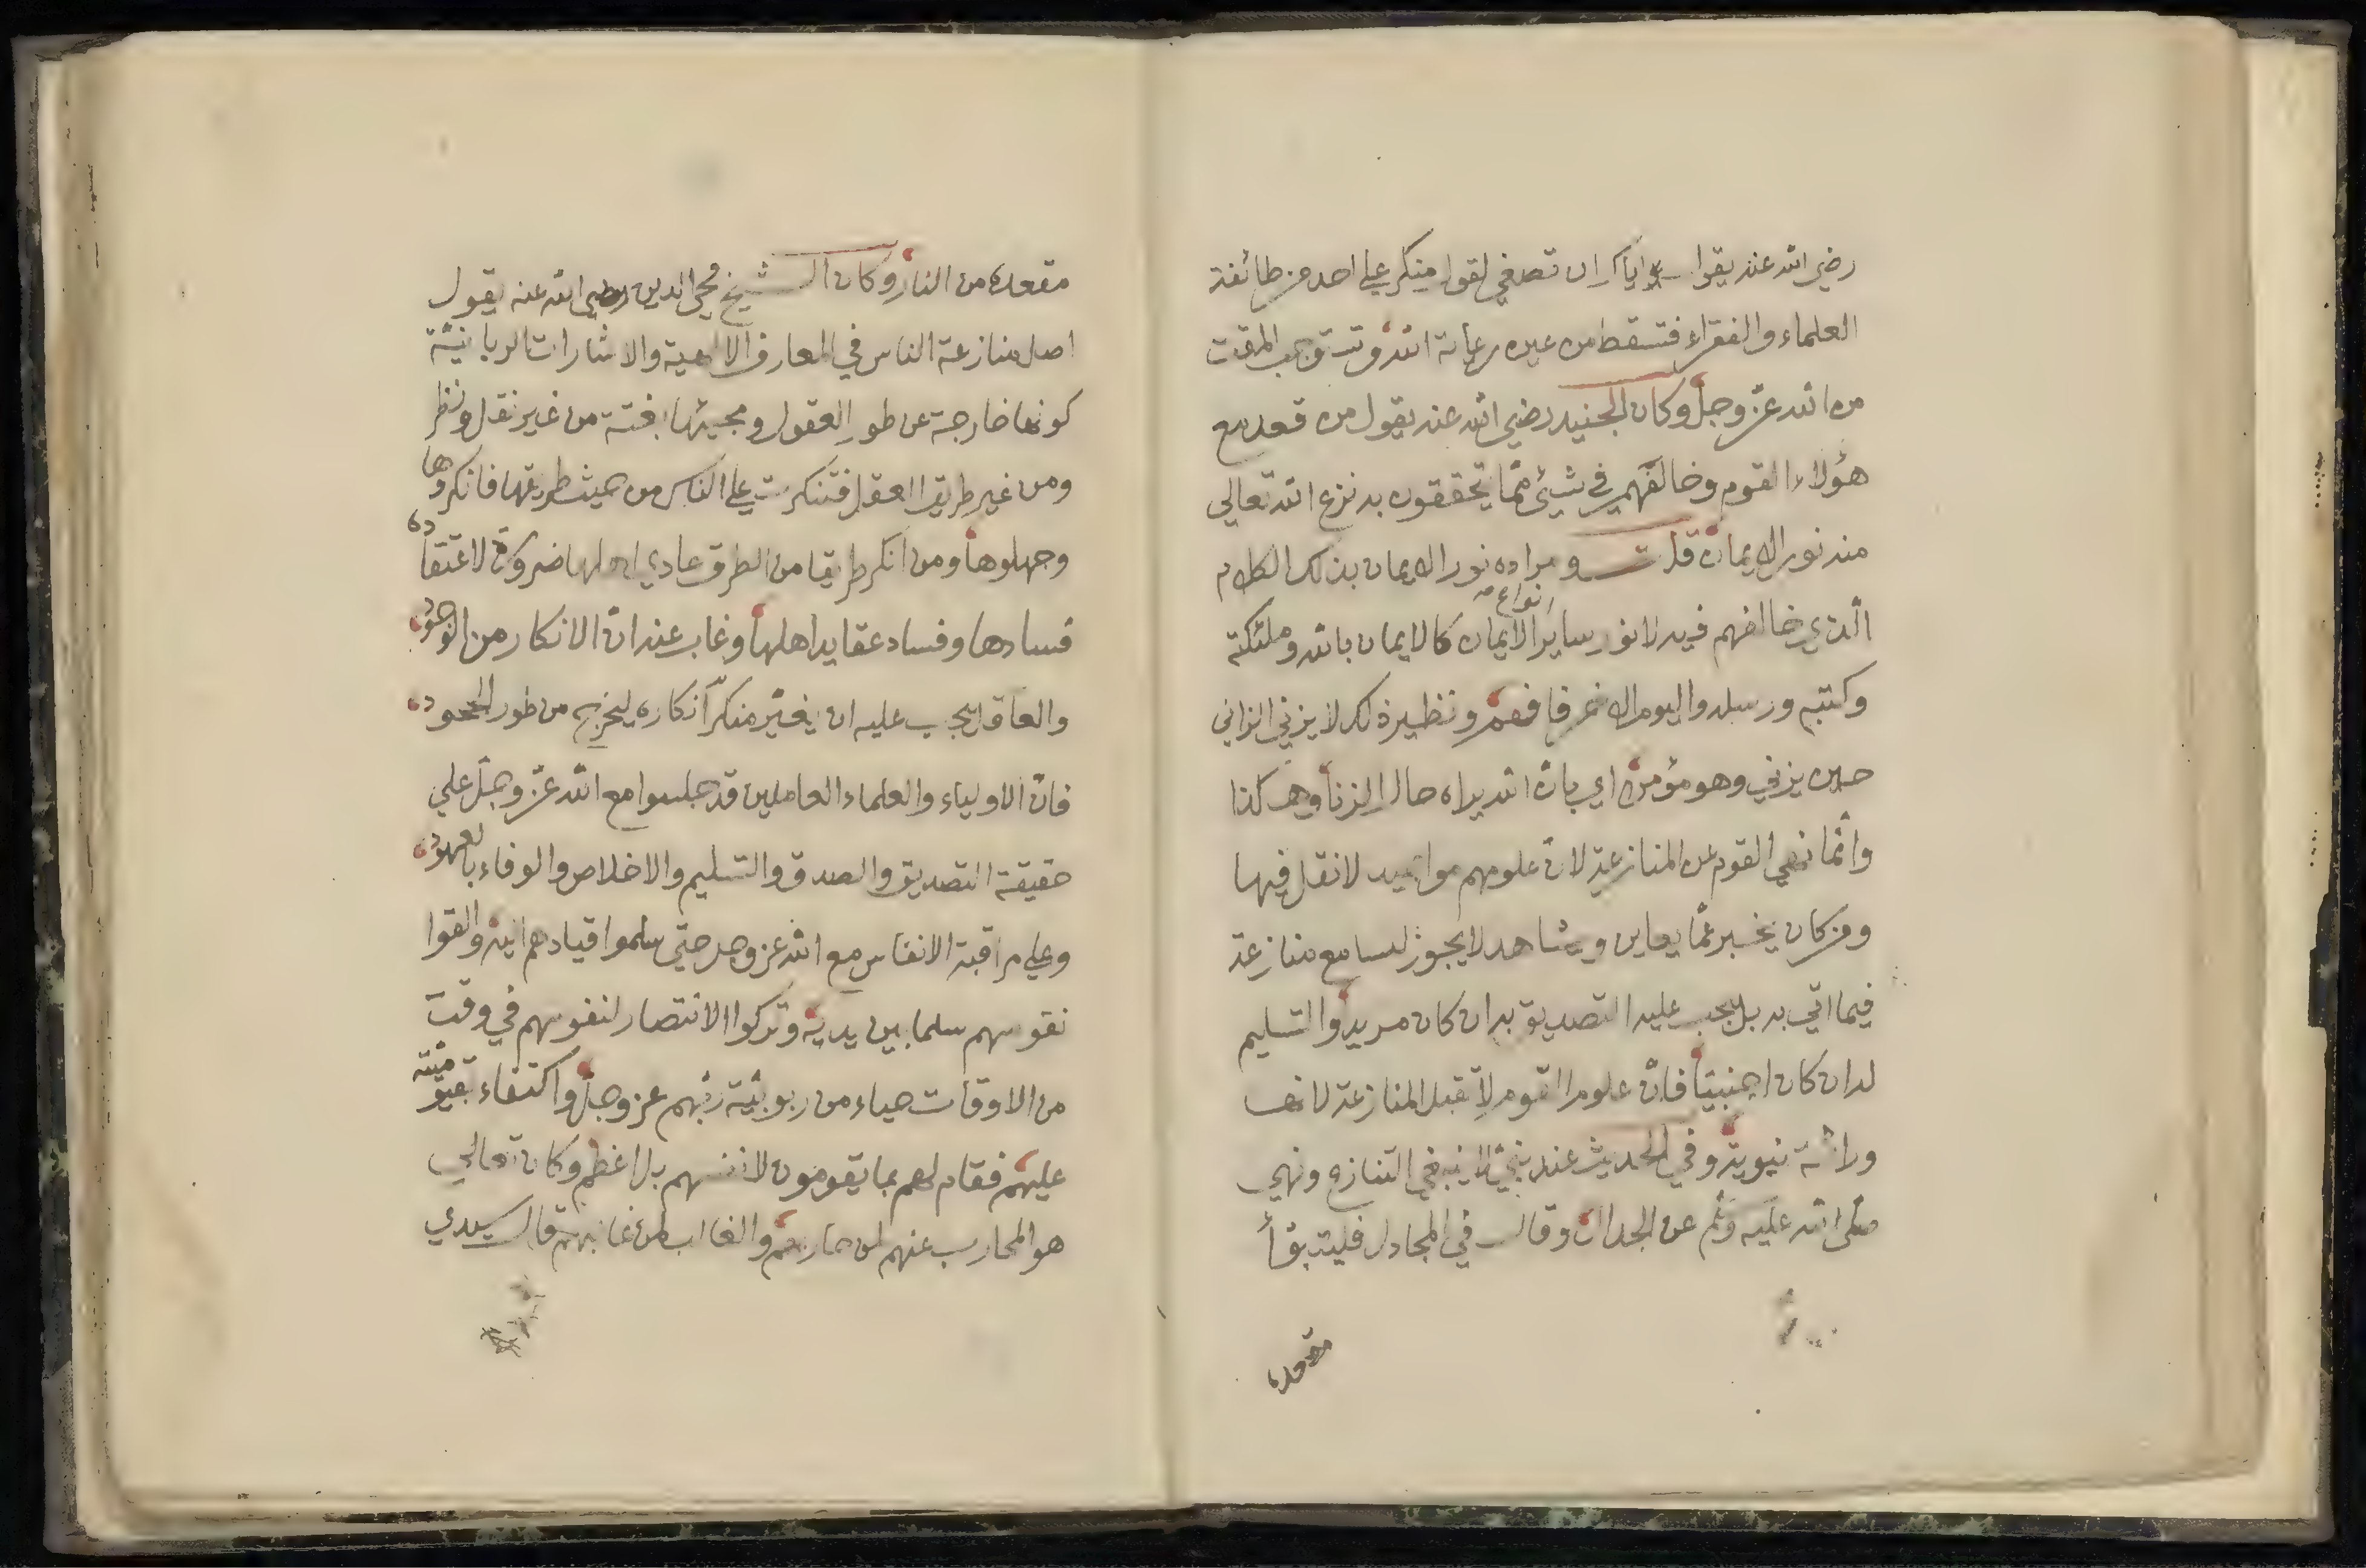 رضي الله عنه يقول اياك ان تصغي لقول منكر على احد من طائفة
العلماء والفقراء فتسقط من عين رعاية الله وتستوجب المقت
من الله عز وجل وكان الجنيد رضي الله عنه يقول من قعد مع
هؤلاء القوم وخالفهم في شيئ مما يتحققون به نزع الله تعالي
منه نور الايمان قلت ومراده نور الايمان بذلك الكلام
الذي خالفهم فيه لا نور ساير انواع الايمان كالايمان بالله وملئكته
وكتبه ورسله واليوم الاخر فافهم ونظير ذلك لا يزني الزاني
حين يزني وهو مؤمن اي بان الله يراه حال الزنا وهكذا
وانما نهي القوم عن المنازعة لان علومهم مواجيد لا نقل فيها
ومن كان يخبر عما يعاين ويشاهد لا يجوز لسامع منازعة
فيما اتي به بل يجب عليه التصديق به ان كان مريدا والتسليم
له ان كان اجنبيا فان علوم القوم لا تقبل المنازعة لانها
وراثة نبوية وفي الحديث عند نبي لا ينبغي التنازع ونهي
صلى الله عليه وسلم عن الجدال وقال في المجادل فليتبوأ
مقعده
مقعده من النار وكان الشيخ محيي الدين رضي الله عنه يقول
اصل منازعة الناس في المعارف الالهية والاشارات الربانية
كونها خارجة عن طور العقول ومجيئها بغتة من غير نقل ونظر
ومن غير طريق العقل فتنكرت على الناس من حيث طريقها فانكروها
وجهلوها ومن انكر طريقا من الطرق عادي اهلها ضرورة لاعتقاده
فسادها وفساد عقايد اهلها وغاب عنه ان الانكار من الوجود
والعاقل يجب عليه ان يغير منكر انكاره ليخرج من طور الجحود
فان الاولياء والعلماء العاملين قد جلسوا مع الله عز وجل علي
حقيقة التصديق والصدق والتسليم والاخلاص والوفاء بالعهود
وعلى مراقبة الانفاس مع الله عز وجل حتى سلموا قيادهم اليه والقوا
نفوسهم سلما بين يديه وتركوا الانتصار لنفوسهم في وقت
من الاوقات حياء من ربوبية ربهم عز وجل واكتفاء بقيوميته
عليهم فقام لهم بما يقومون لانفسهم بل اعظم وكان تعالى
هو المحارب عنهم لمن حاربهم والغالب لمن غالبهم قال سيدي